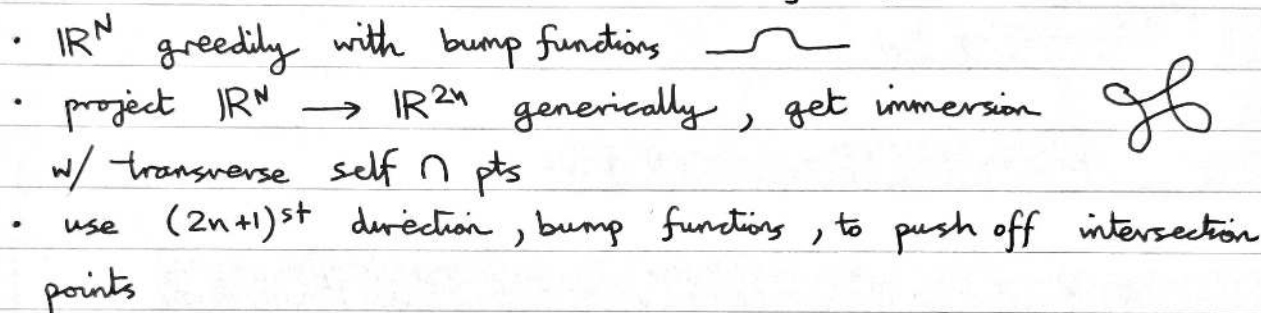 · ℝᴺ greedily with bump functions
· project ℝᴺ → ℝ²ⁿ generically, get immersion
w/ transverse self ∩ pts
· use (2n+1)ˢᵗ direction, bump functions, to push off intersection
points